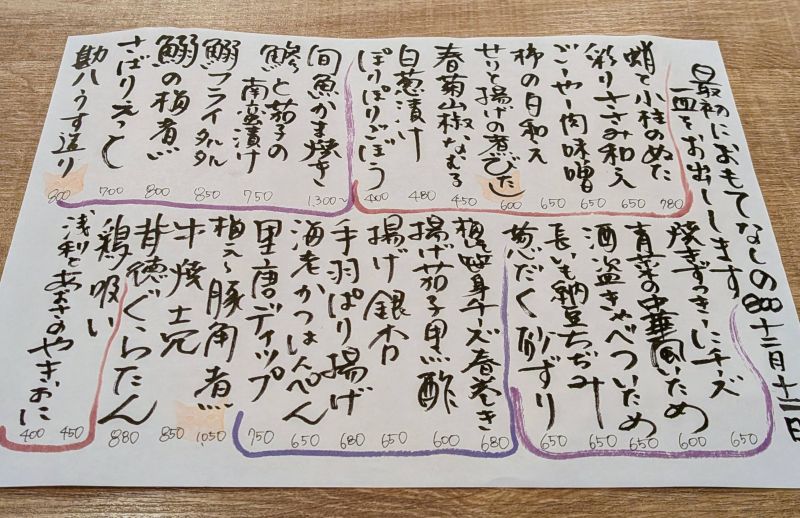 ◎最初におもてなしの
一皿をお出しします
800
十二月十二日
蛸と小柱のぬた 780
彩りささみ和え 650
ごーやー肉味噌 650
柿の白和え 650
せりと揚げの煮びたし 600
春菊山椒なむる 450
白葱漬け 480
ぽりぽりごぼう 400
旬魚かま焼き 1,300〜
鯵と茄子の
南蛮漬け 750
鰯フライタルタル 850
鰯の梅煮 800
さばりえっと 700
勘八うす造り 800
焼きずっきーにチーズ 650
青菜の中華風いため 600
酒盗きゃべついため 650
長いも納豆ちぢみ 650
葱だく砂ずり 650
チーズ春巻き 680
揚げ茄子黒酢 600
揚げ銀杏 650
手羽ぱり揚げ 680
海老かつはんぺん 650
里唐ディップ 750
梅ぇ〜豚角煮 1,050
牛焼土完 850
昔徳ぐらたん 880
鶏吸い 450
浅利とあおさのやきおに 400